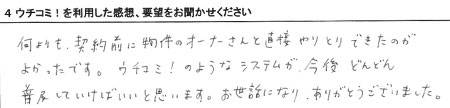 4 ウチコミ！を利用した感想、要望をお聞かせください
何よりも、契約前に物件のオーナーさんと直接やりとりできたのが
よかったです。ウチコミ！のようなシステムが、今後どんどん
普及していけばいいと思います。お世話になり、ありがとうございました。